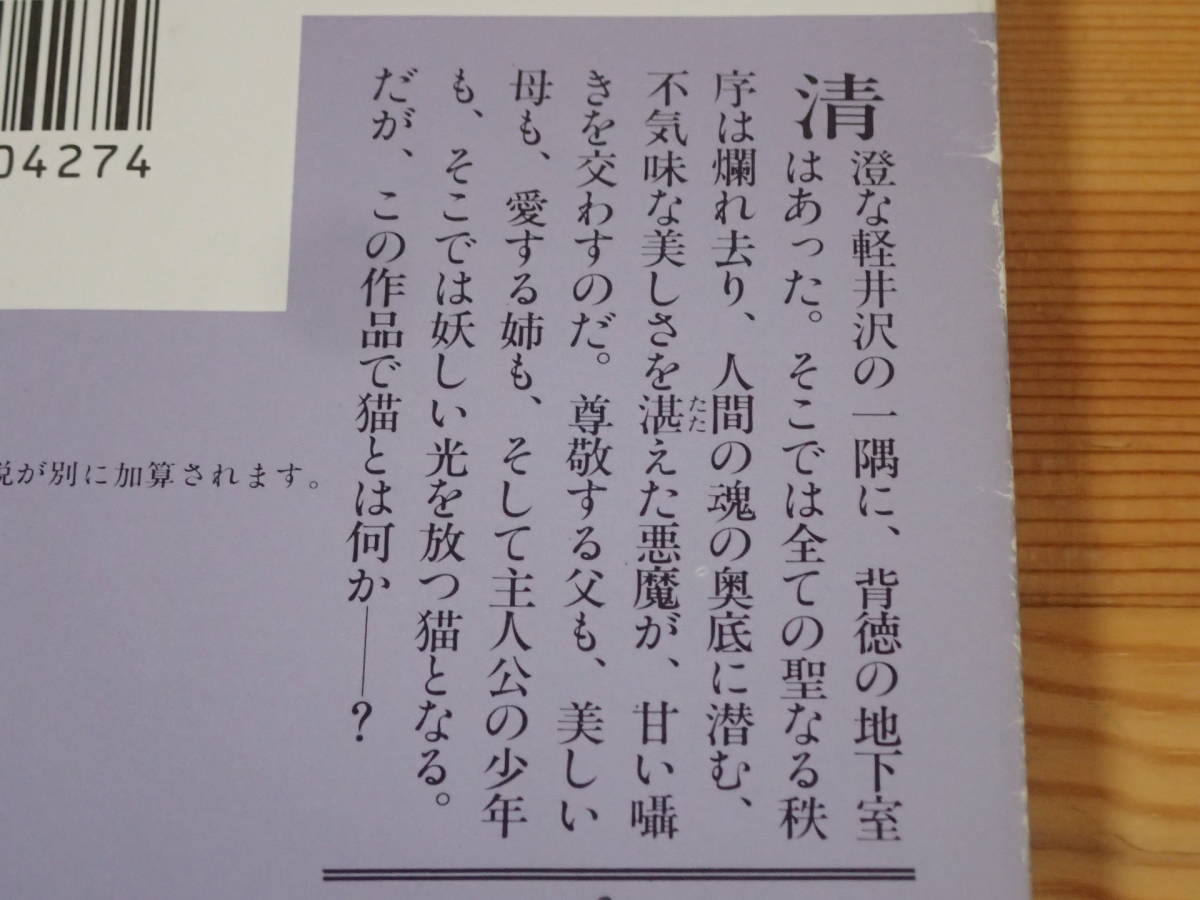 清澄な軽井沢の一隅に、背徳の地下室
はあった。そこでは全ての聖なる秩
序は爛れ去り、人間の魂の奥底に潜む、
不気味な美しさを湛えた悪魔が、甘い囁
たた
きを交わすのだ。尊敬する父も、美しい
母も、愛する姉も、そして主人公の少年
も、そこでは妖しい光を放つ猫となる。
だが、この作品で猫とは何か——？
04274
税が別に加算されます。